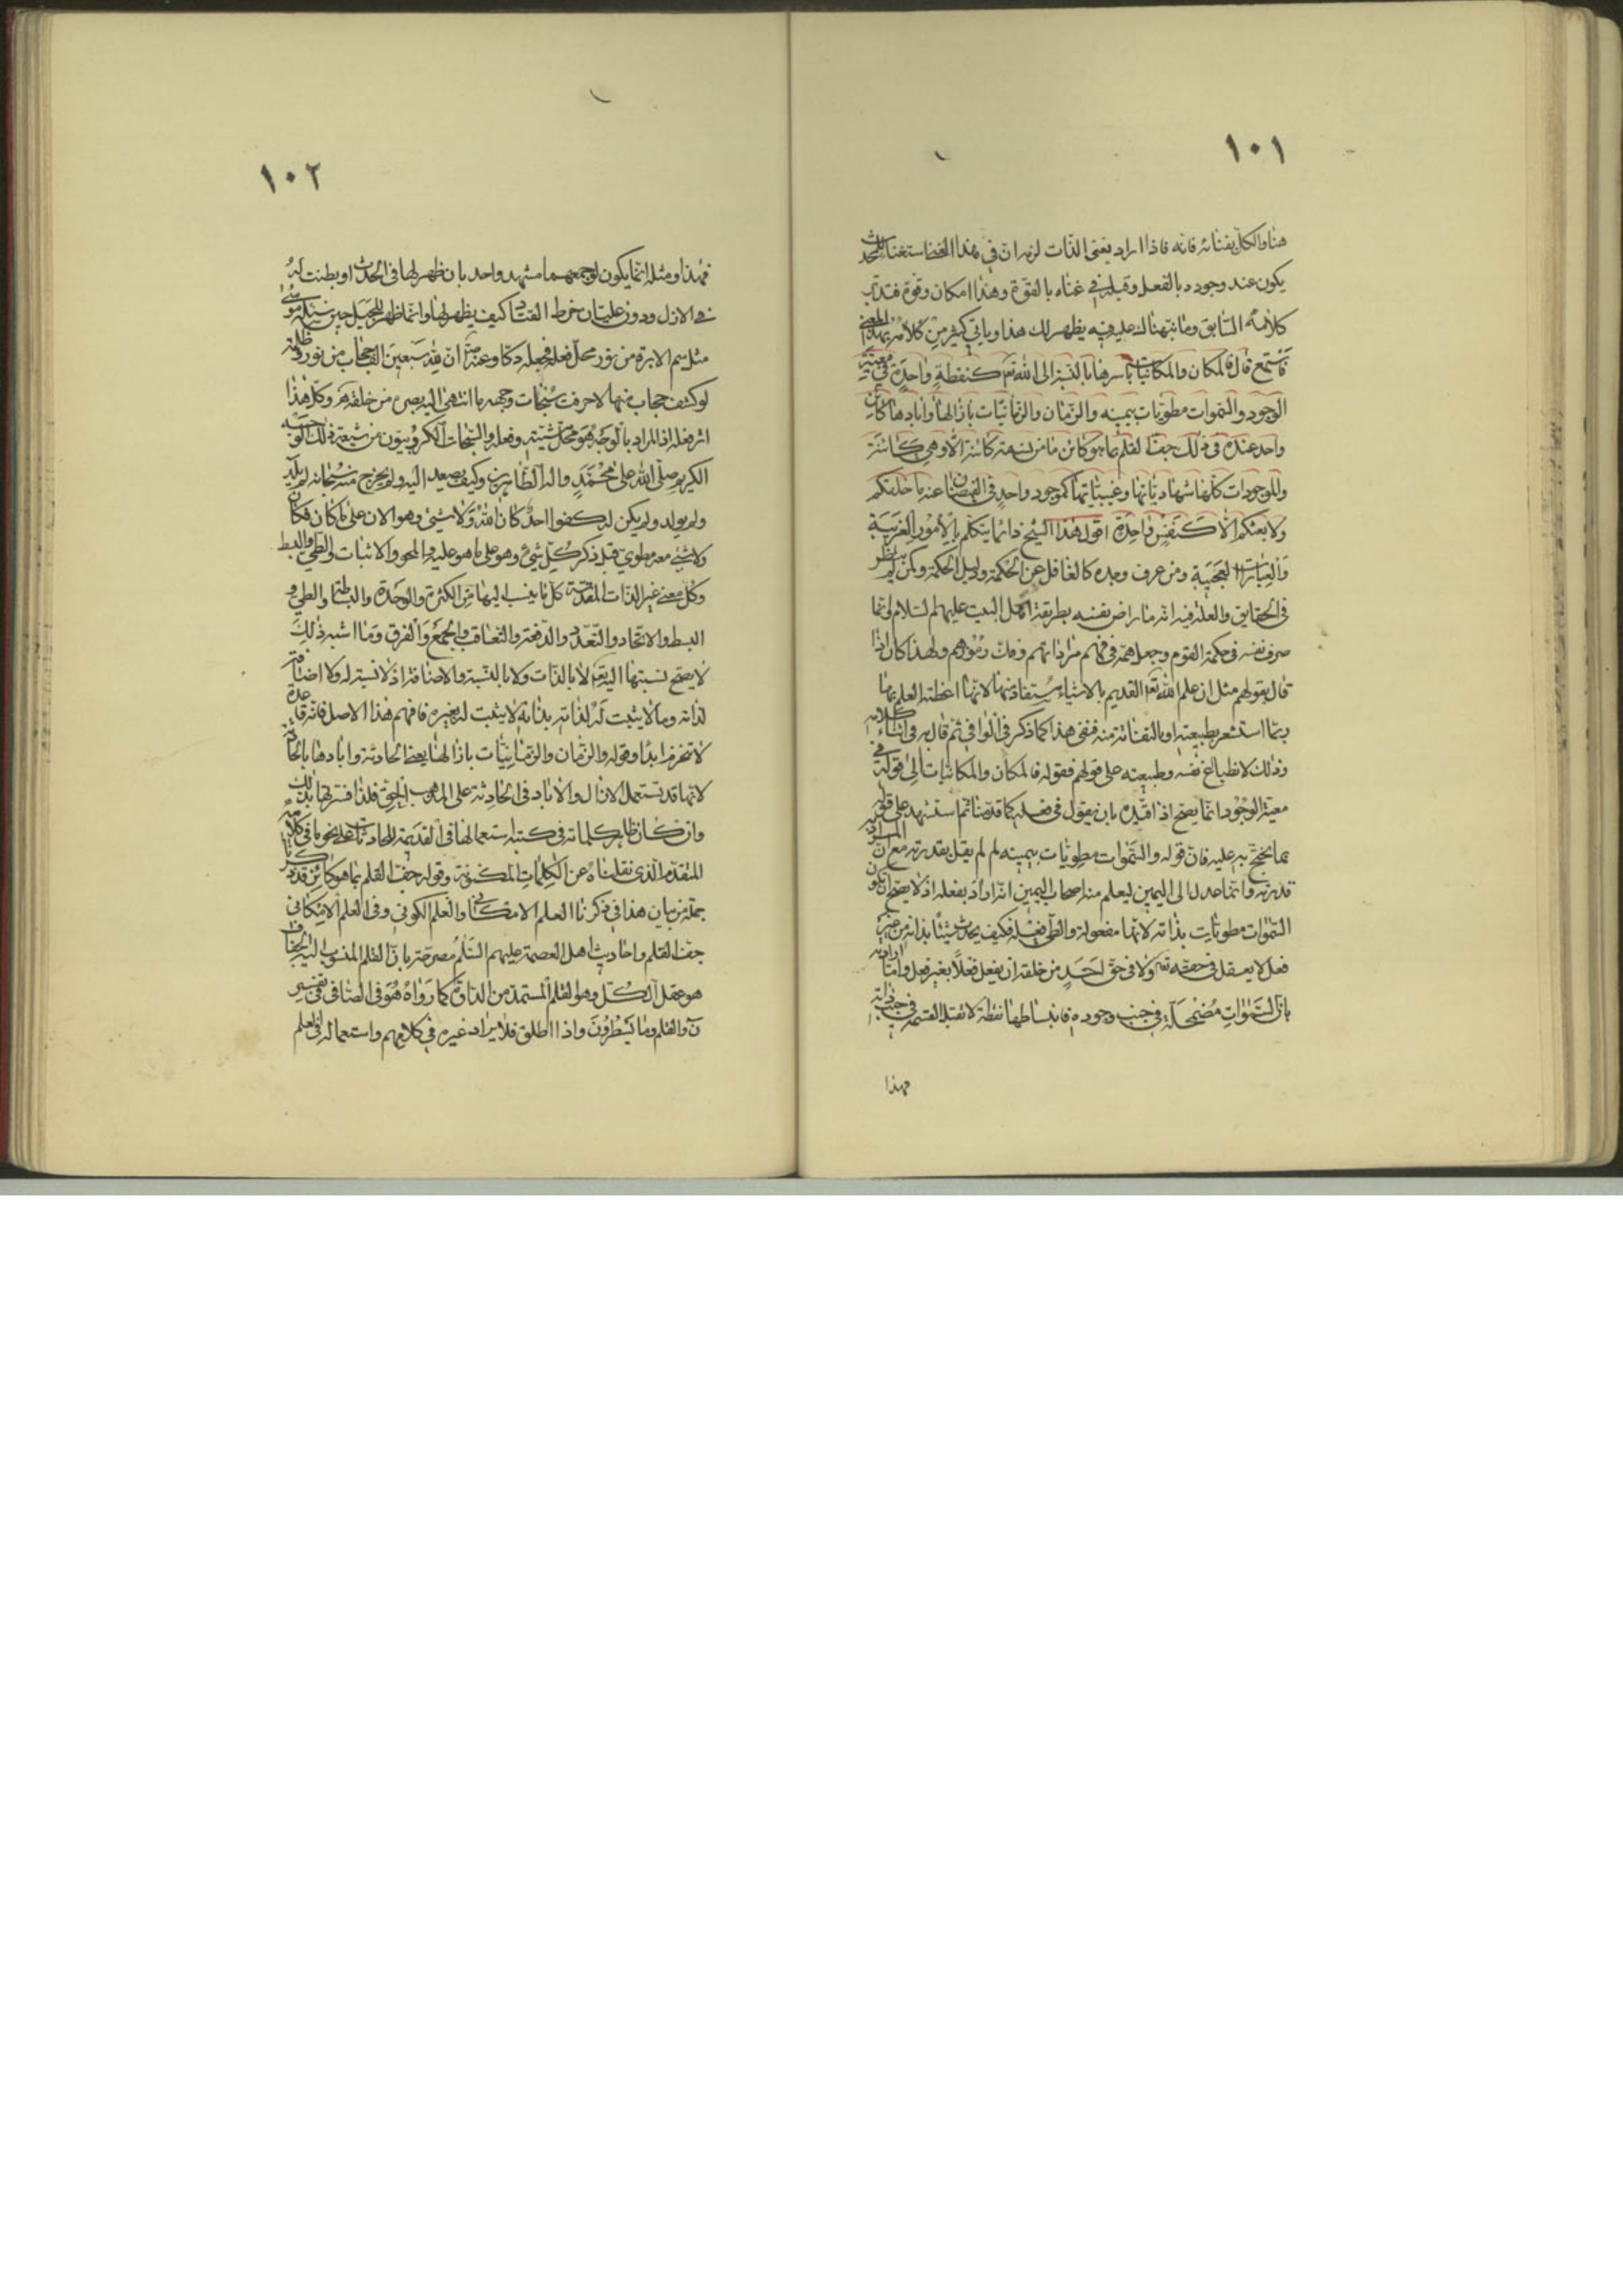 ١٠١
هنا والكل بفنائه فانه فاذا اراد بغنى الذات لزمه ان في هذا الغنا استغنا للحدث
يكون عند وجوده بالفعل وقبله في غناه بالقوة وهذا امكان وقوة فتدبر
كلامه السابق وما نبهناك عليه فيه يظهر لك هذا وياتي كثير من كلامه بهذا المعنى
فاستمع قال فالمكان والمكانيات باسرها بالنسبة الى الله تعالى كنقطة واحدة في معية
الوجود والسموات مطويات بيمينه والزمان والزمانيات بازالها وابادها كان
واحد عنده في ذلك جف القلم بما هو كائن ما من نسمة كائنة الا وهي كائنة
والموجودات كلها شهادياتها وغيبياتها كموجود واحد في الفيضان عنه ما خلقكم
ولا بعثكم الا كنفس واحدة اقول هذا الشيخ دائما يتكلم بالامور الغريبة
والعبارات العجيبة ومن عرف وجده كالغافل عن الحكمة ودليل الحكمة ولكن لم ينظر
في الحقايق والعلة فيه انه ما راض نفسه بطريقة اهل البيت عليهم السلام وانما
صرف نفسه في حكمة القوم وجعل همه في فهم مراداتهم وفك رموزهم ولهذا كان اذا
قال بقولهم مثل ان علم الله تعالى القديم بالاشياء مستفاد منها لانها اعطته العلم بها
ربما استشعر بطبيعته او بالتفاتة منه فنفى هذا كما ذكر في الوافي ثم قال به في اثناء كلامه
وذلك لانطباع نفسه وطبيعته على قولهم فقوله فالمكان والمكانيات الى قوله في
معية الوجود انما يصح اذا قيده بان يقول في فعله كما قدمنا ثم استشهد على قوله
بما يحتج به عليه فان قوله والسموات مطويات بيمينه لم لم يقل بقدرته مع ان المراد
قدرته وانما عدل الى اليمين ليعلم منه اصحاب اليمين انه اراد بفعله اذ لا يصح ان تكون
السموات مطويات بذاته لانها مفعولة والطي فعله فكيف يحدث شيئا بذاته من غير
فعل لا يعقل في حقه تعالى ولا في حق احد من خلقه ان يفعل فعلا بغير فعل واما ارادته
بان السموات مضمحلة في جنب وجوده فانبساطها نقطة لا تقبل القسمة في جنب ذاته
فهذا
١٠٢
فهذا ومثله انما يكون لو جمعهما مشهد واحد بان ظهر لها في الحدث او بطنت له
في الازل ودون عليتان خرط القتاد كيف يظهر لها وانما ظهر للجبل حين سئله موسى
مثل سم الابرة من نور محل فعله فجعله دكا وعنه ان لله سبعين الف حجاب من نور وظلمة
لو كشف حجاب منها لاحرقت سبحات وجهه ما انتهى اليه بصره من خلقه وكل هذا
اثر فعله اذ المراد بالوجه هو محل مشيته وفعله والسبحات الكروبيون من شيعة ذلك الوجه
الكريم صلى الله على محمد واله الطاهرين وكيف يصعد اليه ولم يخرج منه سبحانه لم يلد
ولم يولد ولم يكن له كفوا احد كان الله ولا شيئ وهو الان على ما كان فكان
ولا شئ معه مطوي قبل ذكر كل شئ وهو على ما هو عليه والمحو والاثبات والطي والبسط
وكل معنى غير الذات المقدسة كل ما ينسب اليها من الكثرة والوحدة والبساطة والطي و
البسط والاتحاد والتعدد والدفعة والتعاقب والجمع والفرق وما اشبه ذلك
لا يصح نسبتها اليه تعالى لا بالذات ولا بالنسبة والاضافة اذ لا نسبة له ولا اضافة
لذاته وما لا يثبت له لذاته بذاته لا يثبت له بغيره فافهم هذا الاصل فانه قاعدة
لا تنخرم ابدا وقوله والزمان والزمانيات بازالها يعنى الحادثة وابادها بالحادثة
لانها قد تستعمل الازال والاباد في الحادثة على المذهب الحق فلذا فسرتها بذلك
وان كان ظاهر كلماته في كتبه استعمالها في القديمة للحادثات على نحو ما في كلامه
المتقدم الذي نقلناه عن الكلمات المكنونة وقوله جف القلم بما هو كائن قد ذكرنا
جملة من بيان هذا في ذكرنا العلم الامكاني والعلم الكوني وفي العلم الامكاني
جف القلم واحاديث اهل العصمة عليهم السلم مصرحة بان القلم المنسوب اليه الجفاف
هو عقل الكل وهو القلم المستمد من الدواة كما رواه هو في الصافي في تفسير
ن والقلم وما يسطرون واذا اطلق فلا يراد غيره في كلامهم واستعماله في العلم